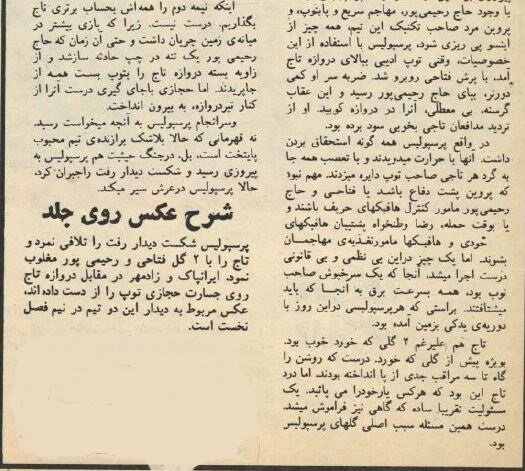 با وجود حاج رحیمی‌پور، مهاجم سریع و باتوپ، و
پروین مرد صاحب تکنیک این تیم، همه چیز از
اینسو پی ریزی شود، پرسپولیس با استفاده از این
خصوصیات، وقتی توپ ادیبی ببالای دروازه تاج
آمد، با پرش فتاحی روبرو شد. ضربه سر او کمی
دورتر، بپای حاج رحیمی‌پور رسید و این عقاب
گرسنه، بی معطلی، آنرا در دروازه کوبید. او از
تردید مدافعان تاجی بخوبی سود برده بود.
در واقع پرسپولیس همه گونه استحقاق بردن
داشت. آنها با حرارت میدویدند و با تعصب همه جا
به گرد هر تاجی صاحب توپ دایره میزدند. مهم نبود
که پروین پشت دفاع باشد یا فتاحی و حاج
رحیمی‌پور مامور کنترل هافبکهای حریف باشند و
یا بوقت حمله، رضا وطنخواه پشتیبان هافبکهای
خودی و هافبکها مامورتغذیه‌ی مهاجمان
بشوند. اما یک چیز دراین بی نظمی و بی قانونی
درست اجرا میشد، آنجا که یک سرخپوش صاحب
توپ بود، همه بسرعت برق به آنجا که باید
میشتافتند. براستی که هرپرسپولیسی دراین روز با
دوریه‌ی یدکی بزمین آمده بود.
تاج هم علیرغم ۲ گلی که خورد خوب بود.
بویژه پیش از گلی که خورد. درست که روشن را
گاه تا سه مراقب جدی از پا انداخته بودند، اما درد
تاج این بود که هرکس یارخودرا می پائید. یک
مسئولیت تقریبا ساده که گاهی نیز فراموش میشد.
درست همین مسئله سبب اصلی گلهای پرسپولیس
بود.
اینکه نیمه دوم را همه‌اش بحساب برتری تاج
بگذاریم، درست نیست. زیرا که بازی بیشتر در
میانه‌ی زمین جریان داشت و حتی آن زمان که حاج
رحیمی پور یک تنه در چپ حادثه سازشد و از
زاویه بسته دروازه تاج را بتوپ بست همه از
جاپریدند. اما حجازی باجای گیری درست آنرا از
کنار تیردروازه، به بیرون انداخت.
وسرانجام پرسپولیس به آنچه میخواست رسید.
نه قهرمانی که حالا بلاشک برازنده‌ی تیم محبوب
پایتخت است، بل، درجنگ حیثیت هم پرسپولیس به
پیروزی رسید و شکست دیدار رفت راجبران کرد،
حالا پرسپولیس درعرش سیر میکند.
شرح عکس روی جلد
پرسپولیس شکست دیدار رفت را تلافی نمرد و
تاج را با ۲ گل فتاحی و رحیمی پور مغلوب
نمود. ایرانپاک و زادمهر در مقابل دروازه تاج
روی جسارت حجازی توپ را از دست داده‌اند،
عکس مربوط به دیدار این دو تیم در نیم فصل
نخست است.